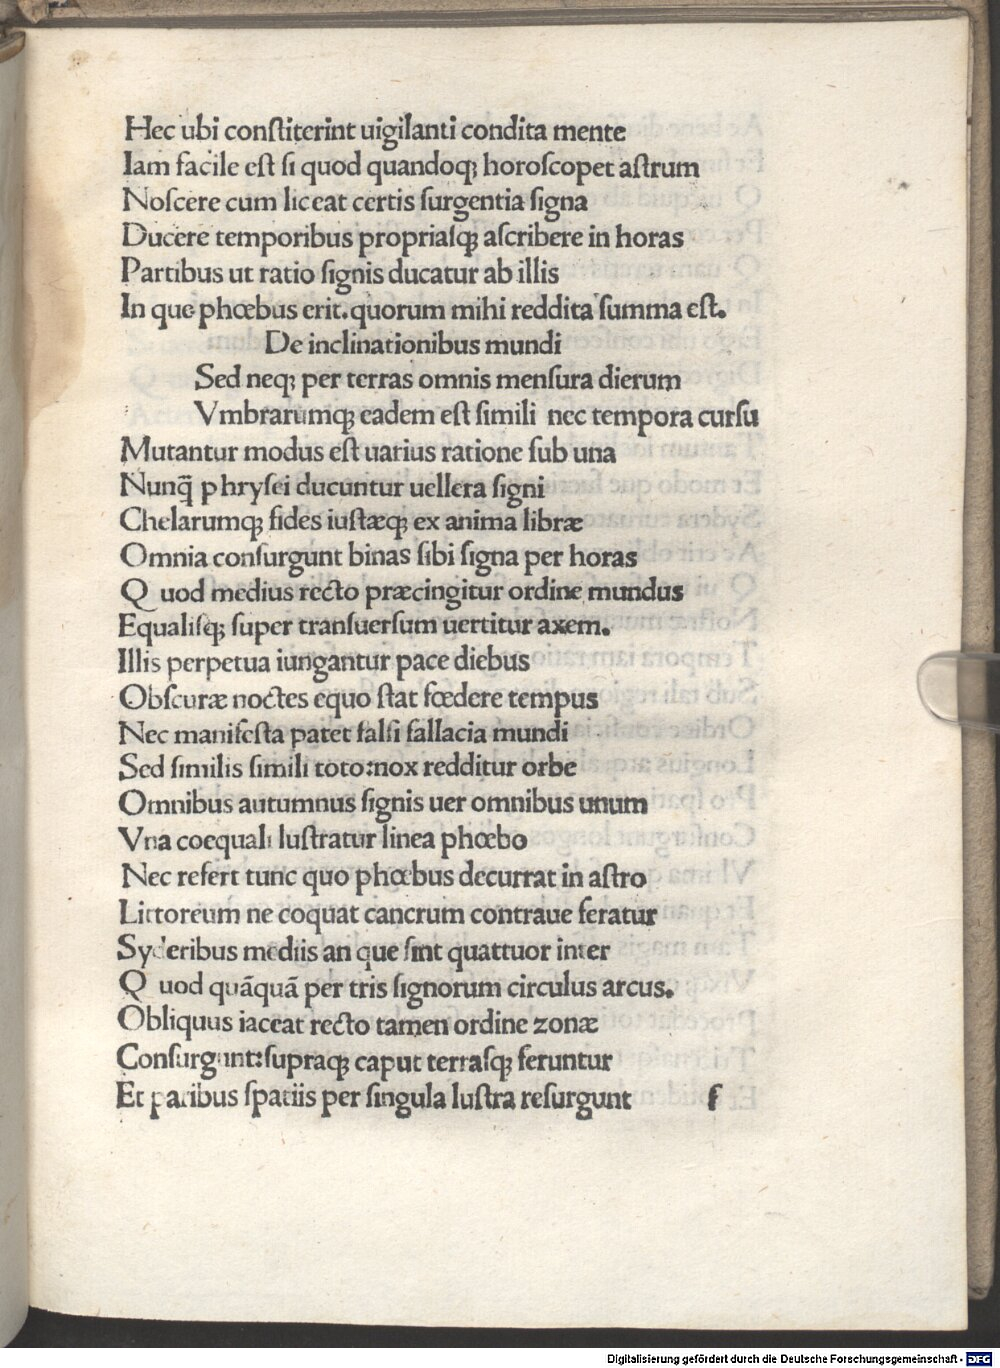 Hec ubi conſtiterint uigilanti condita mente
Iam facile eſt ſi quod quandoqꝫ horoſcopet aſtrum
Noſcere cum liceat certis ſurgentia ſigna
Ducere temporibus propriaſqꝫ aſcribere in horas
Partibus ut ratio ſignis ducatur ab illis
In que phœbus erit.quorum mihi reddita ſumma eſt.
De inclinationibus mundi
Sed neqꝫ per terras omnis menſura dierum
Vmbrarumqꝫ eadem eſt ſimili nec tempora curſu
Mutantur modus eſt uarius ratione ſub una
Nunq̃ phryſei ducuntur uellera ſigni
Chelarumqꝫ fides iuſtæqꝫ ex anima libræ
Omnia conſurgunt binas ſibi ſigna per horas
Q uod medius recto præcingitur ordine mundus
Equaliſqꝫ ſuper tranſuerſum uertitur axem.
Illis perpetua iungantur pace diebus
Obſcuræ noctes equo ſtat fœdere tempus
Nec manifeſta patet falſi fallacia mundi
Sed ſimilis ſimili toto:nox redditur orbe
Omnibus autumnus ſignis uer omnibus unum
Vna coequali luſtratur linea phœbo
Nec refert tunc quo phœbus decurrat in aſtro
Littoreum ne coquat cancrum contraue feratur
Syderibus mediis an que ſint quattuor inter
Q uod quãquã per tris ſignorum circulus arcus.
Obliquus iaceat recto tamen ordine zonæ
Conſurgunt:ſupraqꝫ caput terraſqꝫ feruntur
Et paribus ſpatiis per ſingula luſtra reſurgunt f
Digitalisierung gefördert durch die Deutsche Forschungsgemeinschaft - DFG